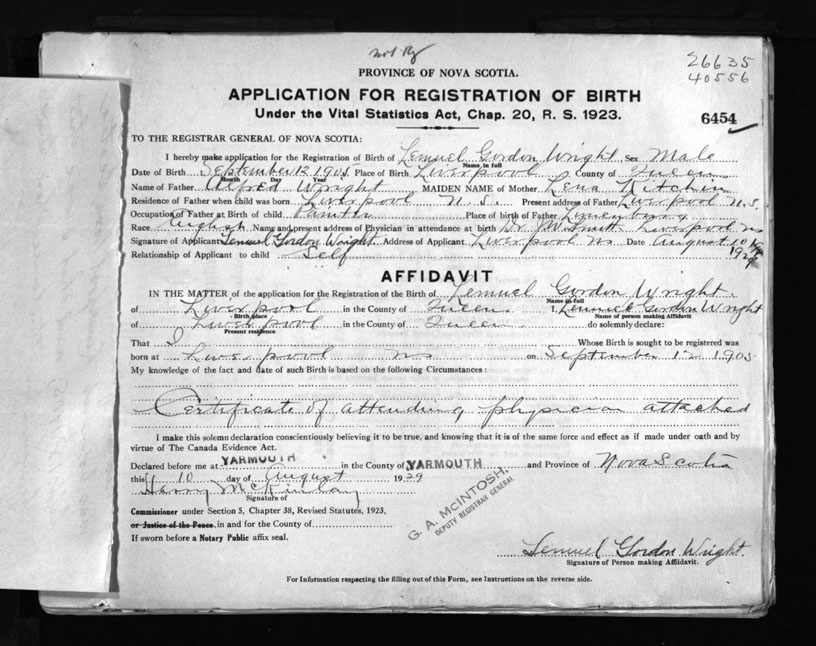 26635
40556
PROVINCE OF NOVA SCOTIA.
APPLICATION FOR REGISTRATION OF BIRTH
Under the Vital Statistics Act, Chap. 20, R. S. 1923.
6454
TO THE REGISTRAR GENERAL OF NOVA SCOTIA:
I hereby make application for the Registration of Birth of Lemuel Gordon Wright Sex Male
Name in full
Date of Birth September 12 1905 Place of Birth Liverpool County of Queens
Month Day Year
Name of Father Alfred Wright MAIDEN NAME of Mother Lena Kitchin
Residence of Father when child was born Liverpool N.S. Present address of Father Liverpool N.S.
Occupation of Father at Birth of child Painter Place of birth of Father Lunenburg
Race English Name and present address of Physician in attendance at birth Dr J W Smith Liverpool NS
Signature of Applicant Lemuel Gordon Wright Address of Applicant Liverpool NS Date August 10
1929
Relationship of Applicant to child Self
AFFIDAVIT
IN THE MATTER of the application for the Registration of the Birth of Lemuel Gordon Wright.
Name in full
of Liverpool in the County of Queens I, Lemuel Gordon Wright
Birth place Name of person making Affidavit
of Liverpool in the County of Queens do solemnly declare:
Present residence
That I Whose Birth is sought to be registered was
born at Liverpool NS on September 12 1905
My knowledge of the fact and date of such Birth is based on the following Circumstances:
Certificate of attending physician attached
I make this solemn declaration conscientiously believing it to be true, and knowing that it is of the same force and effect as if made under oath and by
virtue of The Canada Evidence Act.
Declared before me at YARMOUTH in the County of YARMOUTH and Province of Nova Scotia
this 10 day of August 1929
Harry McKinlay
Signature of
G. A. McINTOSH.
DEPUTY REGISTRAR GENERAL
Commissioner under Section 5, Chapter 38, Revised Statutes, 1923,
or Justice of the Peace, in and for the County of
If sworn before a Notary Public affix seal.
Lemuel Gordon Wright.
Signature of Person making Affidavit.
For Information respecting the filling out of this Form, see Instructions on the reverse side.